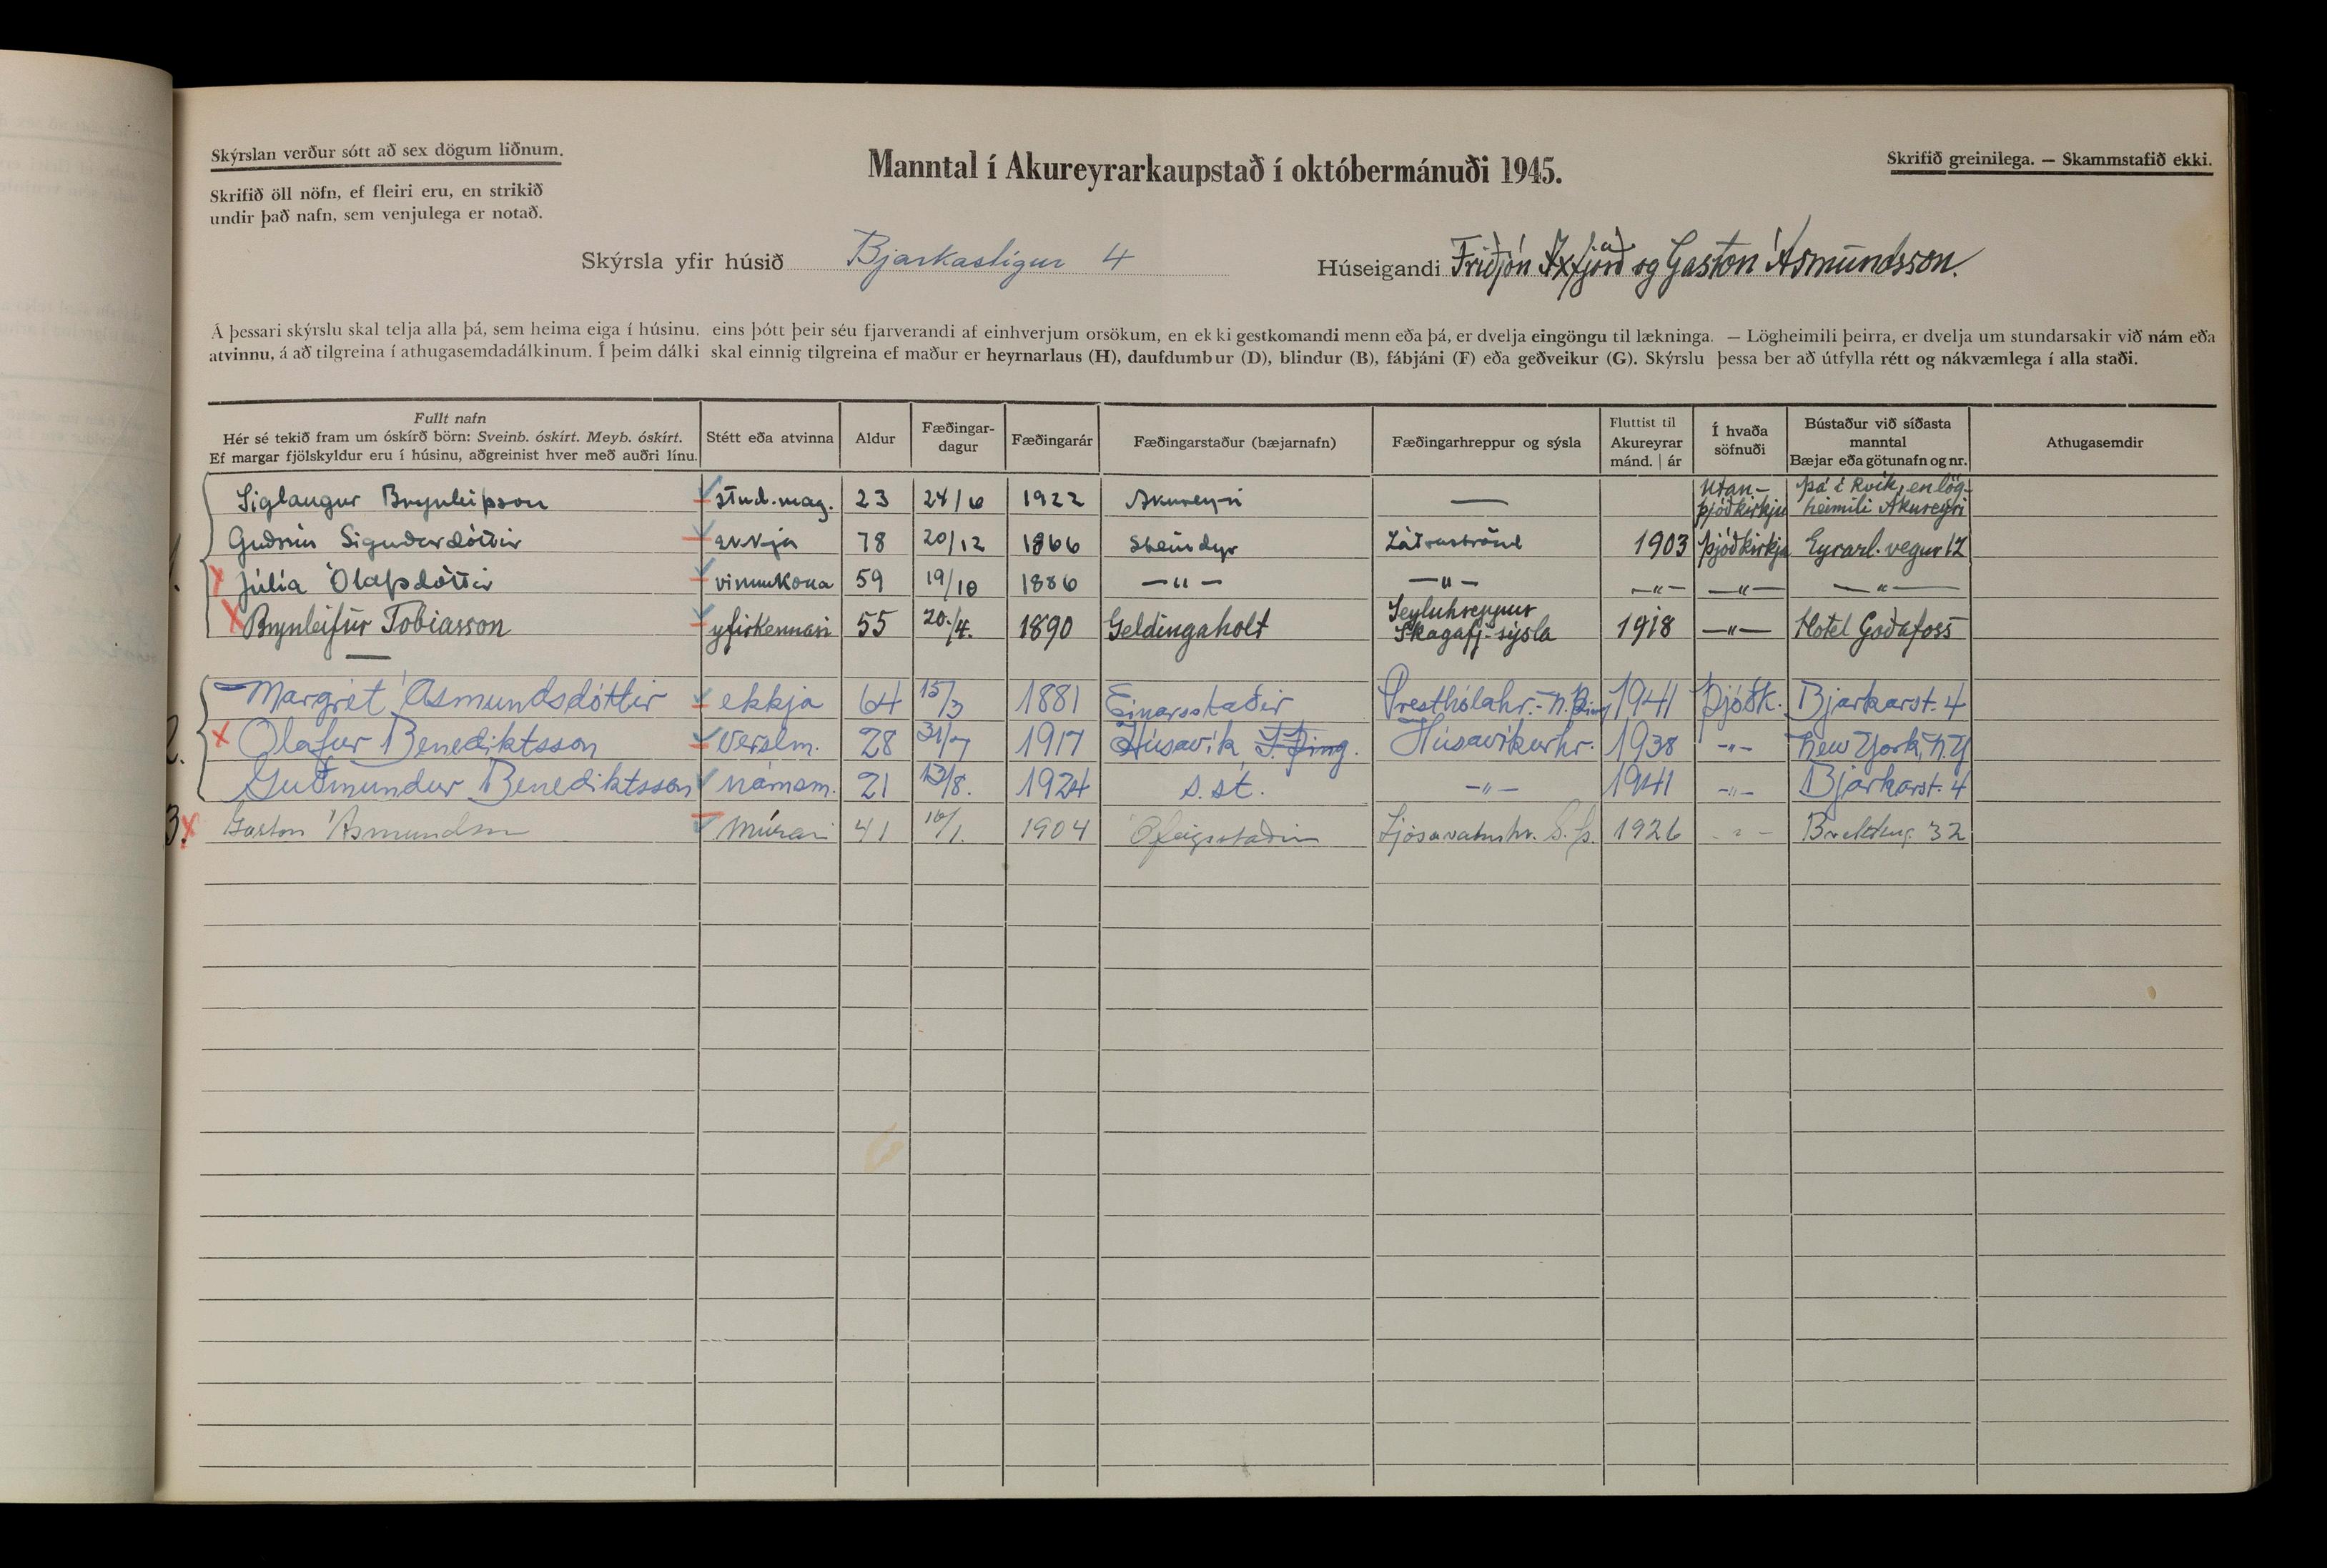 Skýrslan verður sótt að sex dögum liðnum.
Skrifið öll nöfn, ef fleiri eru, en strikið
undir það nafn, sem venjulega er notað.
Manntal í Akureyrarkaupstað í októbermánuði 1945.
Skrifið greinilega. — Skammstafið ekki.
Skýrsla yfir húsið Bjarkastígur 4
Húseigandi Friðjón Axfjörð og Gaston Ásmundsson.
Á þessari skýrslu skal telja alla þá, sem heima eiga í húsinu, eins þótt þeir séu fjarverandi af einhverjum orsökum, en ekki gestkomandi menn eða þá, er dvelja eingöngu til lækninga. — Lögheimili þeirra, er dvelja um stundarsakir við nám eða
atvinnu, á að tilgreina í athugasemdadálkinum. Í þeim dálki skal einnig tilgreina ef maður er heyrnarlaus (H), daufdumbur (D), blindur (B), fábjáni (F) eða geðveikur (G). Skýrslu þessa ber að útfylla rétt og nákvæmlega í alla staði.
Fullt nafn
Hér sé tekið fram um óskírð börn: Sveinb. óskírt. Meyb. óskírt.
Ef margar fjölskyldur eru í húsinu, aðgreinist hver með auðri línu.
Stétt eða atvinna
Aldur
Fæðingar-
dagur
Fæðingarár
Fæðingarstaður (bæjarnafn)
Fæðingarhreppur og sýsla
Fluttist til
Akureyrar
mánd. | ár
Í hvaða
söfnuði
Bústaður við síðasta
manntal
Bæjar eða götunafn og nr.
Athugasemdir
Siglaugur Brynleifsson stud. mag. 23 24/6 1922 Akureyri — Utan-þjóðkirkju þá í Rvík, en lög-heimili Akureyri
1. Guðrún Sigurðardóttir ekkja 78 20/12 1866 Steindyr Látraströnd 1903 þjóðkirkja Eyrarl.vegur 12
x Júlía Ólafsdóttir vinnukona 59 19/10 1886 —"— —"— —"— —"— —"—
x Brynleifur Tobiasson yfirkennari 55 20./4. 1890 Geldingaholt Seyluhreppur Skagafj.-sýsla 1918 —"— Hotel Goðafoss
Margrét Ásmundsdóttir ekkja 64 15/3 1881 Einarsstaðir Presthólahr.- N.Þing 1941 Þjóðk. Bjarkarst. 4
2. x Ólafur Benediktsson Verslm. 28 31/7 1917 Húsavík S-Þing. Húsavíkurhr. 1938 -"- New York, N.Y
Guðmundur Benediktsson námsm. 21 13/8. 1924 s.st. -"- 1941 -"- Bjarkarst. 4
3. x Gaston Ásmundsson Múrari 41 16/1. 1904 Ófeigsstaðir Ljósavatnshr. S.Þ. 1926 -"- 32